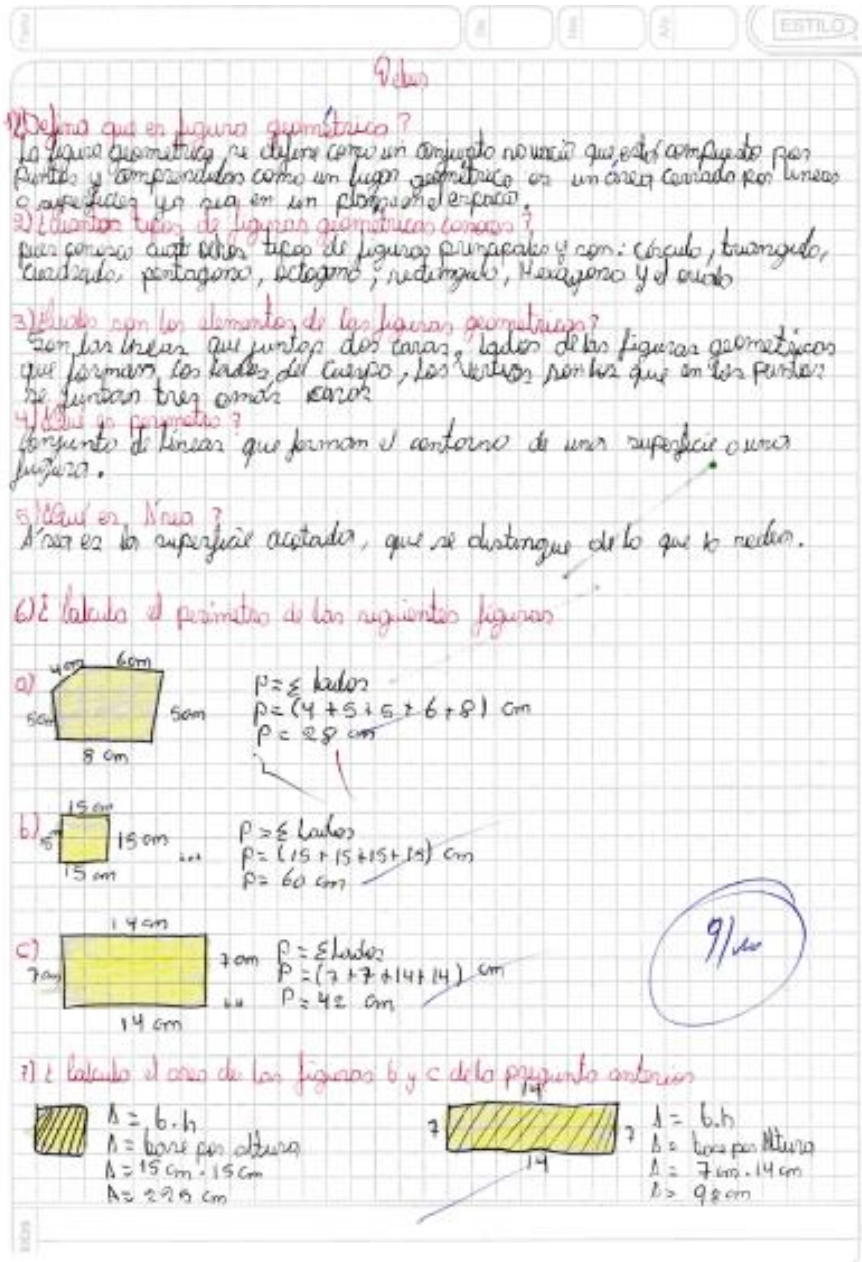 ESTILO
Deber
1) Defina que es figura geométrica?
La figura geometrica, se define como un conjunto no vacio que está compuesto por
puntos y comprendidos como un lugar geométrico es un área cerrada por lineas
o superficies ya sea en un plano en el espacio.
2) ¿Cuantos tipos de figuras geometricas conoces?
pues conosco ocho tipos de figuras principales y son: circulo, triangulo,
cuadrado, pentagono, octogono, rectangulo, Hexagono y el ovalo
3) ¿Cuales son los elementos de las figuras geometricas?
Son las lineas que juntan dos caras, lados de las figuras geometricas
que forman los lados del cuerpo, los vertices son los que en los puntos
se juntan tres o más caras
4) ¿Qué es perimetro?
Conjunto de lineas que forman el contorno de una superficie o una
figura.
5) ¿Qué es Área?
Área es la superficie acotada, que se distingue de lo que lo rodea.
6) ¿ Calcula el perimetro de las siguientes figuras
a) 4cm 6cm
5cm 5cm
8 cm
P = Σ lados
P = (4 + 5 + 5 + 6 + 8) cm
P = 28 cm
b) 15 cm
15 15 cm
15 cm
P = Σ Lados
P = (15 + 15 + 15 + 15) cm
P = 60 cm
c) 14 cm
7cm 7cm
14 cm
P = Σ Lados
P = (7 + 7 + 14 + 14) cm
P = 42 cm
9/10
7) ¿ Calcula el area de las figuras b y c de la pregunta anterior
A = b.h
A = base por altura
A = 15 cm . 15 cm
A = 225 cm
14
7 7
14
A = b.h
A = base por Altura
A = 7 cm . 14 cm
A = 98 cm